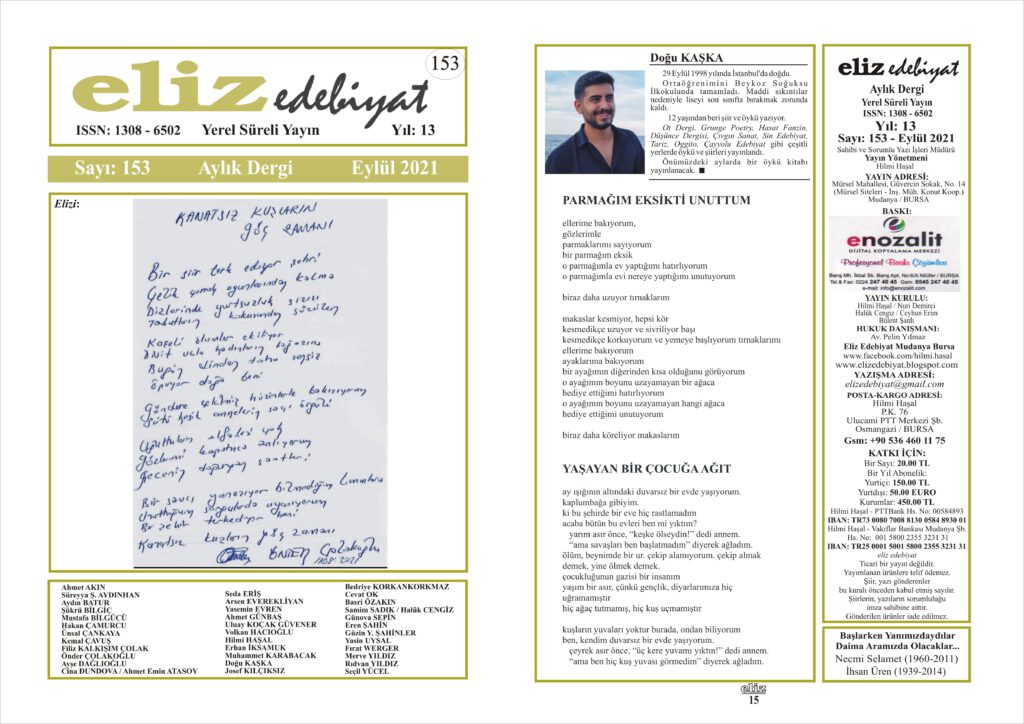 153
eliz edebiyat
ISSN: 1308 - 6502 Yerel Süreli Yayın Yıl: 13
Sayı: 153 Aylık Dergi Eylül 2021
Elizi:
KANATSIZ KUŞLARIN
göç ZAMANI
Bir şiir terk ediyor şehri
Dizlerinde yurtsuzluk sızısı
öpüyor doğa beni
Gözlerimi kapatınca anlıyorum
Gecenin
Kanatsız kuşların göç zamanı
ÖNDER Çolakoğlu
2021
Ahmet AKIN
Süreyya Ş. AYDINHAN
Aydın BATUR
Şükrü BİLGİÇ
Mustafa BİLGÜCÜ
Hakan CAMURCU
Ünsal ÇANKAYA
Kemal ÇAVUŞ
Filiz KALKIŞIM ÇOLAK
Önder ÇOLAKOĞLU
Ayşe DAĞLIOĞLU
Cina DUNDOVA / Ahmet Emin ATASOY
Seda ERİŞ
Arsen EVEREKLİYAN
Yasemin EVREN
Ahmet GÜNBAŞ
Uluay KOÇAK GÜVENER
Volkan HACIOĞLU
Hilmi HAŞAL
Erhan İKSAMUK
Muhammet KARABACAK
Doğu KAŞKA
Josef KILÇIKSIZ
Bedriye KORKANKORKMAZ
Cevat OK
Basri ÖZAKIN
Samim SADIK / Halûk CENGİZ
Günova SEPİN
Eren ŞAHİN
Güzin Y. ŞAHİNLER
Yasin UYSAL
Fırat WERGER
Merve YILDIZ
Rıdvan YILDIZ
Seçil YÜCEL
Doğu KAŞKA
29 Eylül 1998 yılında İstanbul'da doğdu.
Ortaöğrenimini Beykoz Soğuksu
İlkokulunda tamamladı. Maddi sıkıntılar
nedeniyle liseyi son sınıfta bırakmak zorunda
kaldı.
12 yaşından beri şiir ve öykü yazıyor.
Ot Dergi, Grunge Poetry, Hasat Fanzin,
Düşünce Dergisi, Çıvgın Sanat, Sin Edebiyat,
Tariz, Oggito, Çayyolu Edebiyat gibi çeşitli
yerlerde öykü ve şiirleri yayınlandı.
Önümüzdeki aylarda bir öykü kitabı
yayınlanacak. ■
PARMAĞIM EKSİKTİ UNUTTUM
ellerime bakıyorum,
gözlerimle
parmaklarımı sayıyorum
bir parmağım eksik
o parmağımla ev yaptığımı hatırlıyorum
o parmağımla evi nereye yaptığımı unutuyorum
biraz daha uzuyor tırnaklarım
makaslar kesmiyor, hepsi kör
kesmedikçe uzuyor ve sivriliyor başı
kesmedikçe korkuyorum ve yemeye başlıyorum tırnaklarımı
ellerime bakıyorum
ayaklarıma bakıyorum
bir ayağımın diğerinden kısa olduğunu görüyorum
o ayağımın boyunu uzayamayan bir ağaca
hediye ettiğimi hatırlıyorum
o ayağımın boyunu uzayamayan hangi ağaca
hediye ettiğimi unutuyorum
biraz daha köreliyor makaslarım
YAŞAYAN BİR ÇOCUĞA AĞIT
ay ışığının altındaki duvarsız bir evde yaşıyorum.
kaplumbağa gibiyim.
ki bu şehirde bir eve hiç rastlamadım
acaba bütün bu evleri ben mi yıktım?
yarım asır önce, “keşke ölseydin!” dedi annem.
“ama savaşları ben başlatmadım” diyerek ağladım.
ölüm, beynimde bir ur. çekip alamıyorum. çekip almak
demek, yine ölmek demek.
çocukluğunun gazisi bir insanım
yaşım bir asır, çünkü gençlik, diyarlarımıza hiç
uğramamıştır
hiç ağaç tutmamış, hiç kuş uçmamıştır
kuşların yuvaları yoktur burada, ondan biliyorum
ben, kendim duvarsız bir evde yaşıyorum.
çeyrek asır önce, “üç kere yuvamı yıktın!” dedi annem.
“ama ben hiç kuş yuvası görmedim” diyerek ağladım.
eliz
15
eliz edebiyat
Aylık Dergi
Yerel Süreli Yayın
ISSN: 1308 - 6502
Yıl: 13
Sayı: 153 - Eylül 2021
Sahibi ve Sorumlu Yazı İşleri Müdürü
Yayın Yönetmeni
Hilmi Haşal
YAYIN ADRESİ:
Mürsel Mahallesi, Güvercin Sokak, No. 14
(Mürsel Siteleri - İnş. Müh. Konut Koop.)
Mudanya / BURSA
BASKI:
enozalit
DİJİTAL KOPYALAMA MERKEZİ
Profesyonel Baskı Çözümleri
Barış Mh. İkbal Sk. Barış Apt. No:6/A Nilüfer / BURSA
Tel & Fax: 0224 247 40 45 Gsm: 0545 247 40 45
e-mail: info@enozalit.com
YAYIN KURULU:
Hilmi Haşal / Nuri Demirci
Halûk Cengiz / Ceyhun Erim
Bülent Şanlı
HUKUK DANIŞMANI:
Av. Pelin Yılmaz
Eliz Edebiyat Mudanya Bursa
www.facebook.com/hilmi.hasal
www.elizedebiyat.blogspot.com
YAZIŞMA ADRESİ:
elizedebiyat@gmail.com
POSTA-KARGO ADRESİ:
Hilmi Haşal
P.K. 76
Ulucami PTT Merkezi Şb.
Osmangazi / BURSA
Gsm: +90 536 460 11 75
KATKI İÇİN:
Bir Sayı: 20.00 TL
Bir Yıl Abonelik:
Yurtiçi: 150.00 TL
Yurtdışı: 50.00 EURO
Kurumlar: 450.00 TL
Hilmi Haşal - PTTBank Hs. No: 00584893
IBAN: TR73 0080 7008 8130 0584 8930 01
Hilmi Haşal - Vakıflar Bankası Mudanya Şb.
Hs. No: 001 5800 2355 3231 31
IBAN: TR25 0001 5001 5800 2355 3231 31
eliz edebiyat
Ticari bir yayın değildir.
Yayımlanan ürünlere telif ödemez.
Şiir, yazı gönderenler
bu kuralı önceden kabul etmiş sayılır.
Şiirlerin, yazıların sorumluluğu
imza sahibine aittir.
Gönderilen ürünler iade edilmez.
Başlarken Yanımızdaydılar
Daima Aramızda Olacaklar...
Necmi Selamet (1960-2011)
İhsan Üren (1939-2014)